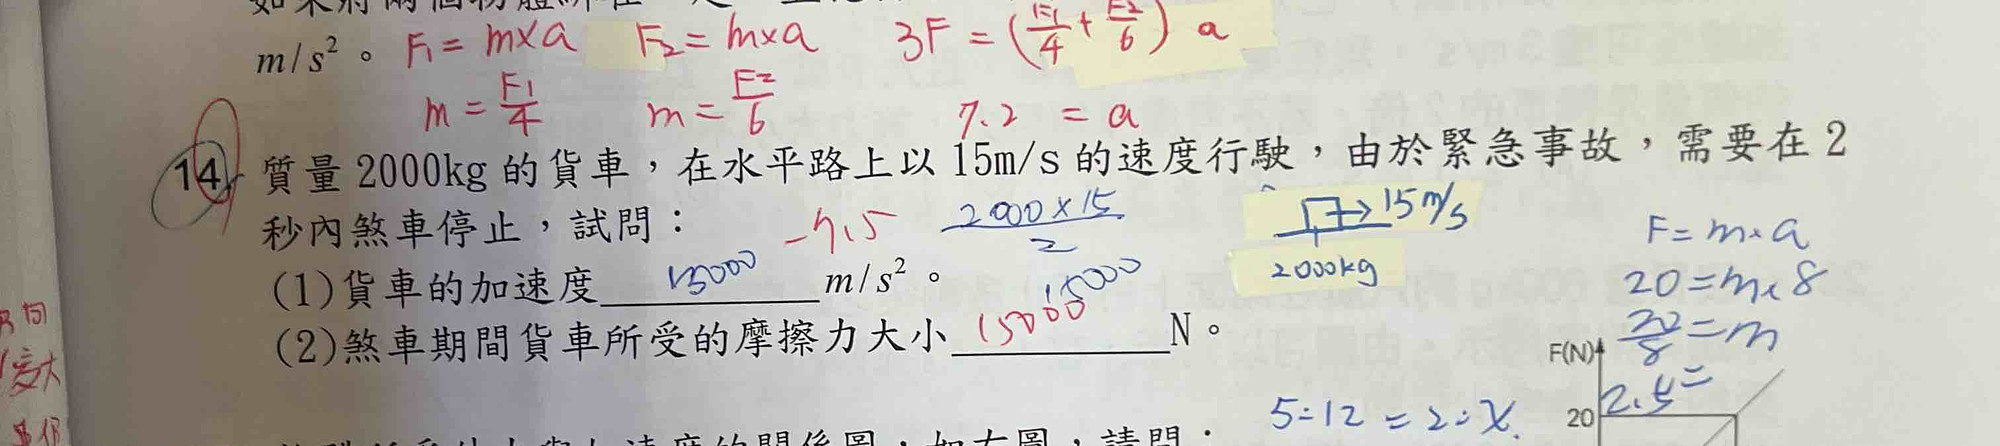 m/s²。 F₁ = m×a F₂ = m×a 3F = (F₁/4 + F₂/6) a
m = F₁/4 m = F₂/6 7.2 = a
14. 質量 2000kg 的貨車，在水平路上以 15m/s 的速度行駛，由於緊急事故，需要在 2
秒內煞車停止，試問：
-7.5 2000×15/2
15m/s
2000kg
(1)貨車的加速度 15000 m/s²。
15000
(2)煞車期間貨車所受的摩擦力大小 15000 N。
F=m·a
20=m×8
20/8=m
2.5=
F(N)
20
5:12=2:x.